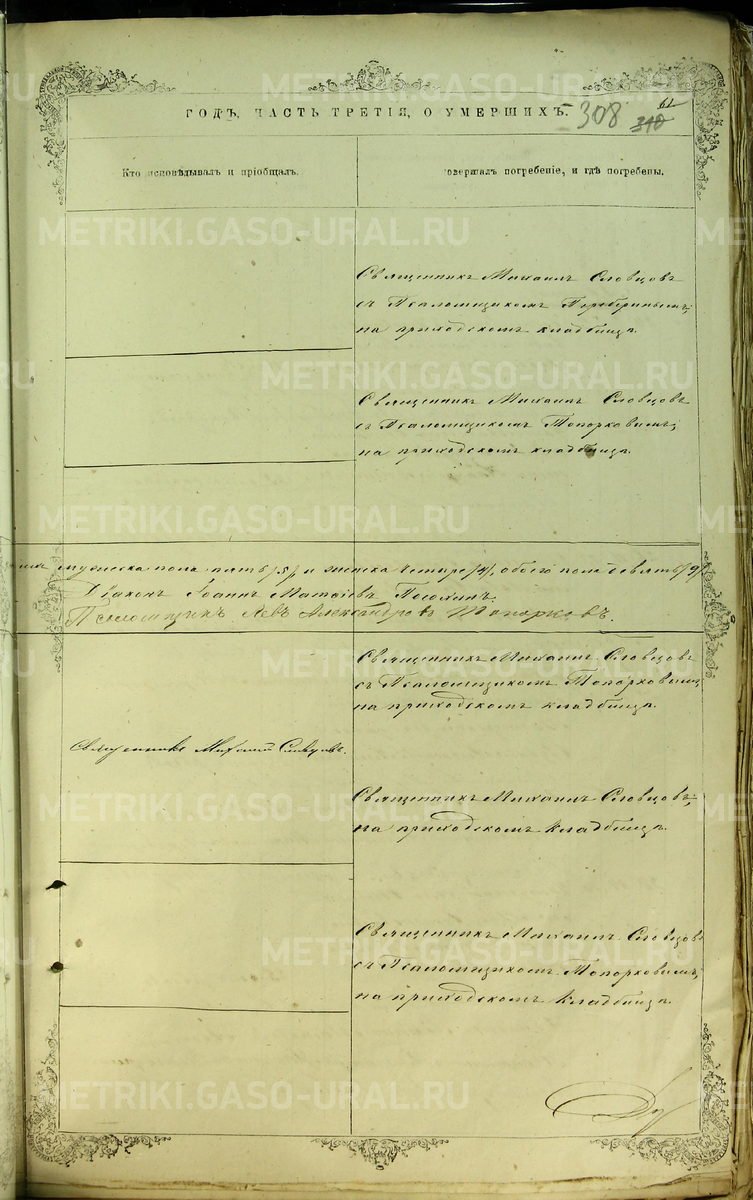 ГОДЪ, ЧАСТЬ ТРЕТІЯ, О УМЕРШИХЪ. 308
Кто исповѣдывалъ и пріобщалъ.
совершалъ погребеніе, и гдѣ погребены.
Священникъ Михаилъ Словцовъ
съ Псаломщикомъ
на приходскомъ кладбищѣ.
Священникъ Михаилъ Словцовъ
съ Псаломщикомъ Топорковымъ,
на приходскомъ кладбищѣ.
мужеска пола пять /5/ и женска четыре /4/, обоего пола девять /9/.
Діаконъ Іоаннъ Матѳіевъ
Псаломщикъ Левъ Александровъ Топорковъ.
Священникъ Михаилъ Словцовъ
съ Псаломщикомъ Топорковымъ,
на приходскомъ кладбищѣ.
Священникъ Михаилъ Словцовъ.
Священникъ Михаилъ Словцовъ,
на приходскомъ кладбищѣ.
Священникъ Михаилъ Словцовъ
съ Псаломщикомъ Топорковымъ,
на приходскомъ кладбищѣ.
METRIKI.GASO-URAL.RU